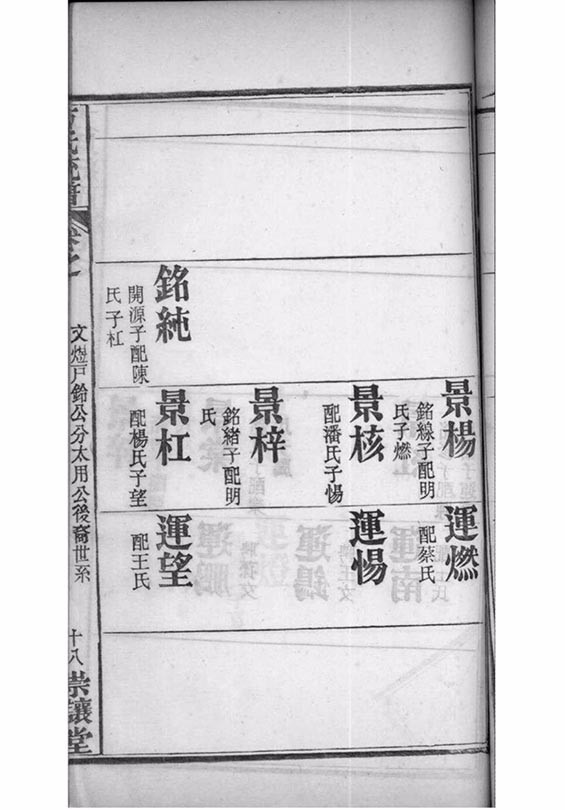 景楊
銘線子配明
氏子燃
運燃
配蔡氏
景核
配潘氏子惕
運惕
景梓
銘緒子配明
氏
銘純
開源子配陳
氏子杠
景杠
配楊氏子望
運望
配王氏
氏統譜
卷之
文煜戶鈴公分太用公後裔世系
十八
崇讓堂